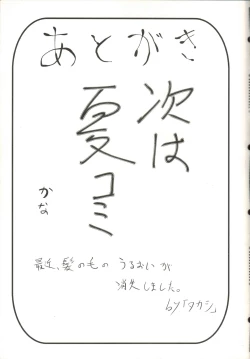 あとがき
次は
夏コミ
かな
最近、髪の毛のうるおいが
消失しました。
by「タカシ」